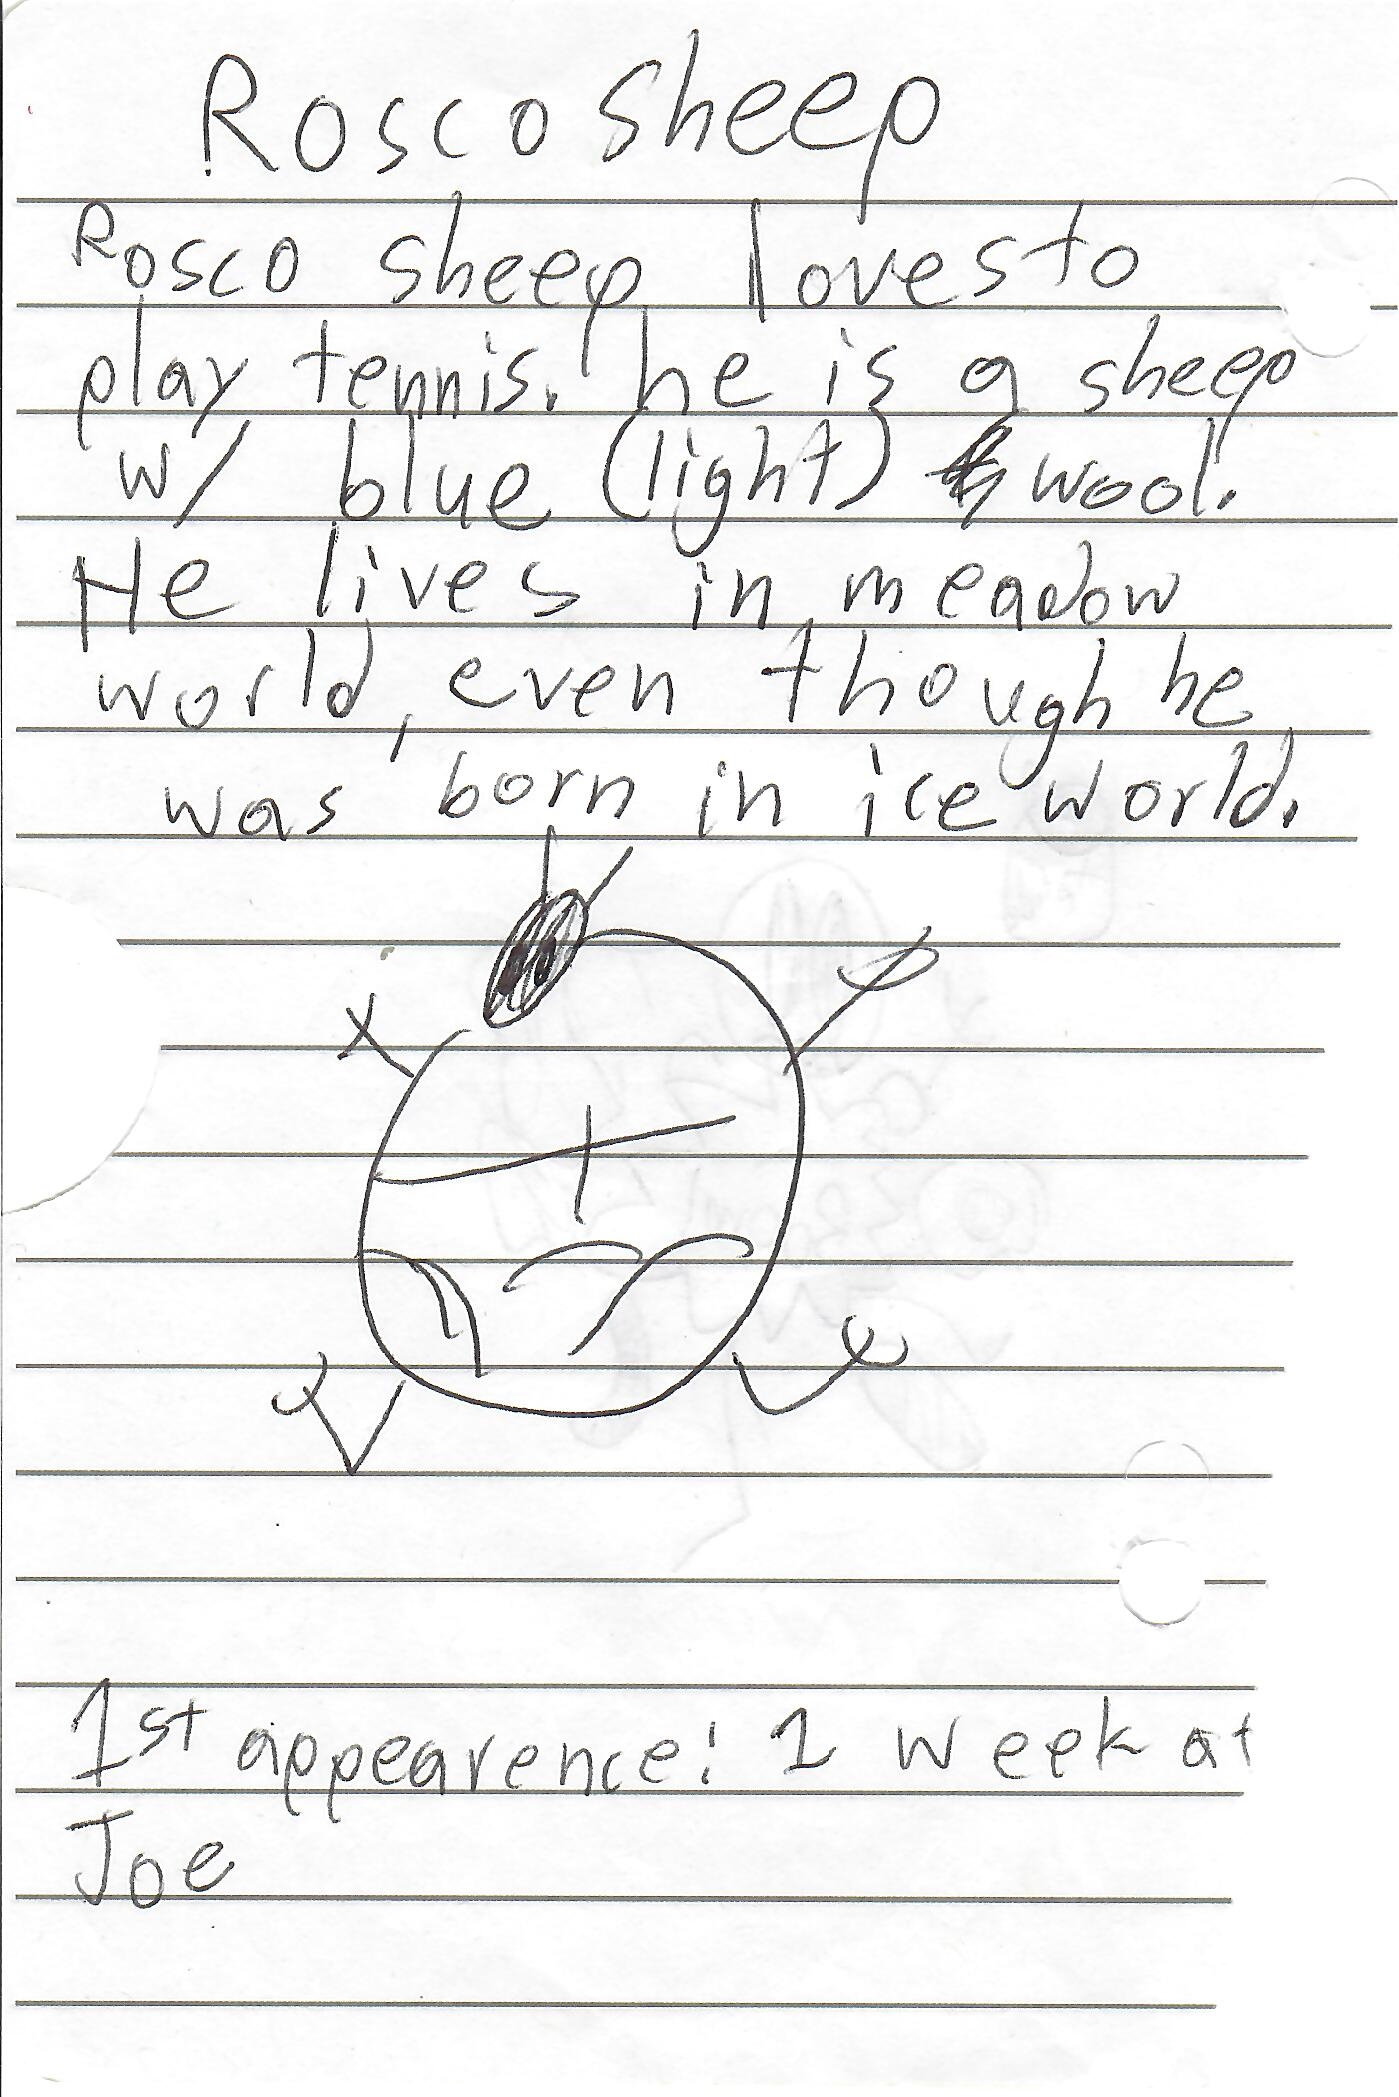 Rosco sheep
Rosco sheep loves to
play tennis. he is a sheep
w/ blue (light) wool.
He lives in meadow
world, even though he
was born in ice world.
1st appearence: 1 week at
Joe